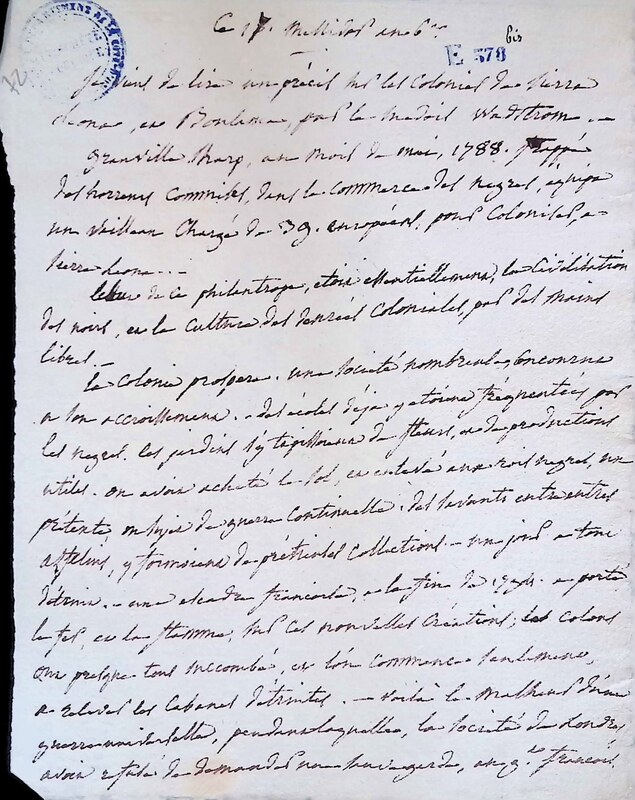 Ce 17. Messidor an 6e.
bis
E 578
32
je viens de lire un précis sur les Colonies de Sierra
Leona, et Boulama, par le suédois Wadstrom. –
Granville Sharp, au mois de mai, 1788. frappé
des horreurs commises, dans le commerce des negres, équipa
un vaisseau chargé de 39. européens, pour coloniser, a
Sierra Leona. –
de ce philantrope, etoit essentiellement, la civilisation
des noirs, et la culture des denrées coloniales, par des mains
libres. –
la colonie prospera. une société nombreuse y concourut
a son accroissement. – des écoles déja y etoient fréquentées par
les negres. les jardins s'y tapissoient de fleurs, et de productions
utiles. on avoit acheté le sol, et enlevé aux rois negres, un
prétexte, ou sujet de guerre continuelle. des savants entre autres
afzelius, y formoient de prétieuses collections. – un jour a tout
détruit. – une escadre francoise, a la fin de 1794. a porté
le fer, et la flamme, sur ces nouvelles créations; les colons
ont presque tous succombé, et l'on commence seulement,
a relever les cabanes détruites. – voila le malheur d'une
guerre universelle, pendant laquelle, la société de Londres
avoit refusé de demander une sauvegarde, au g.t francois